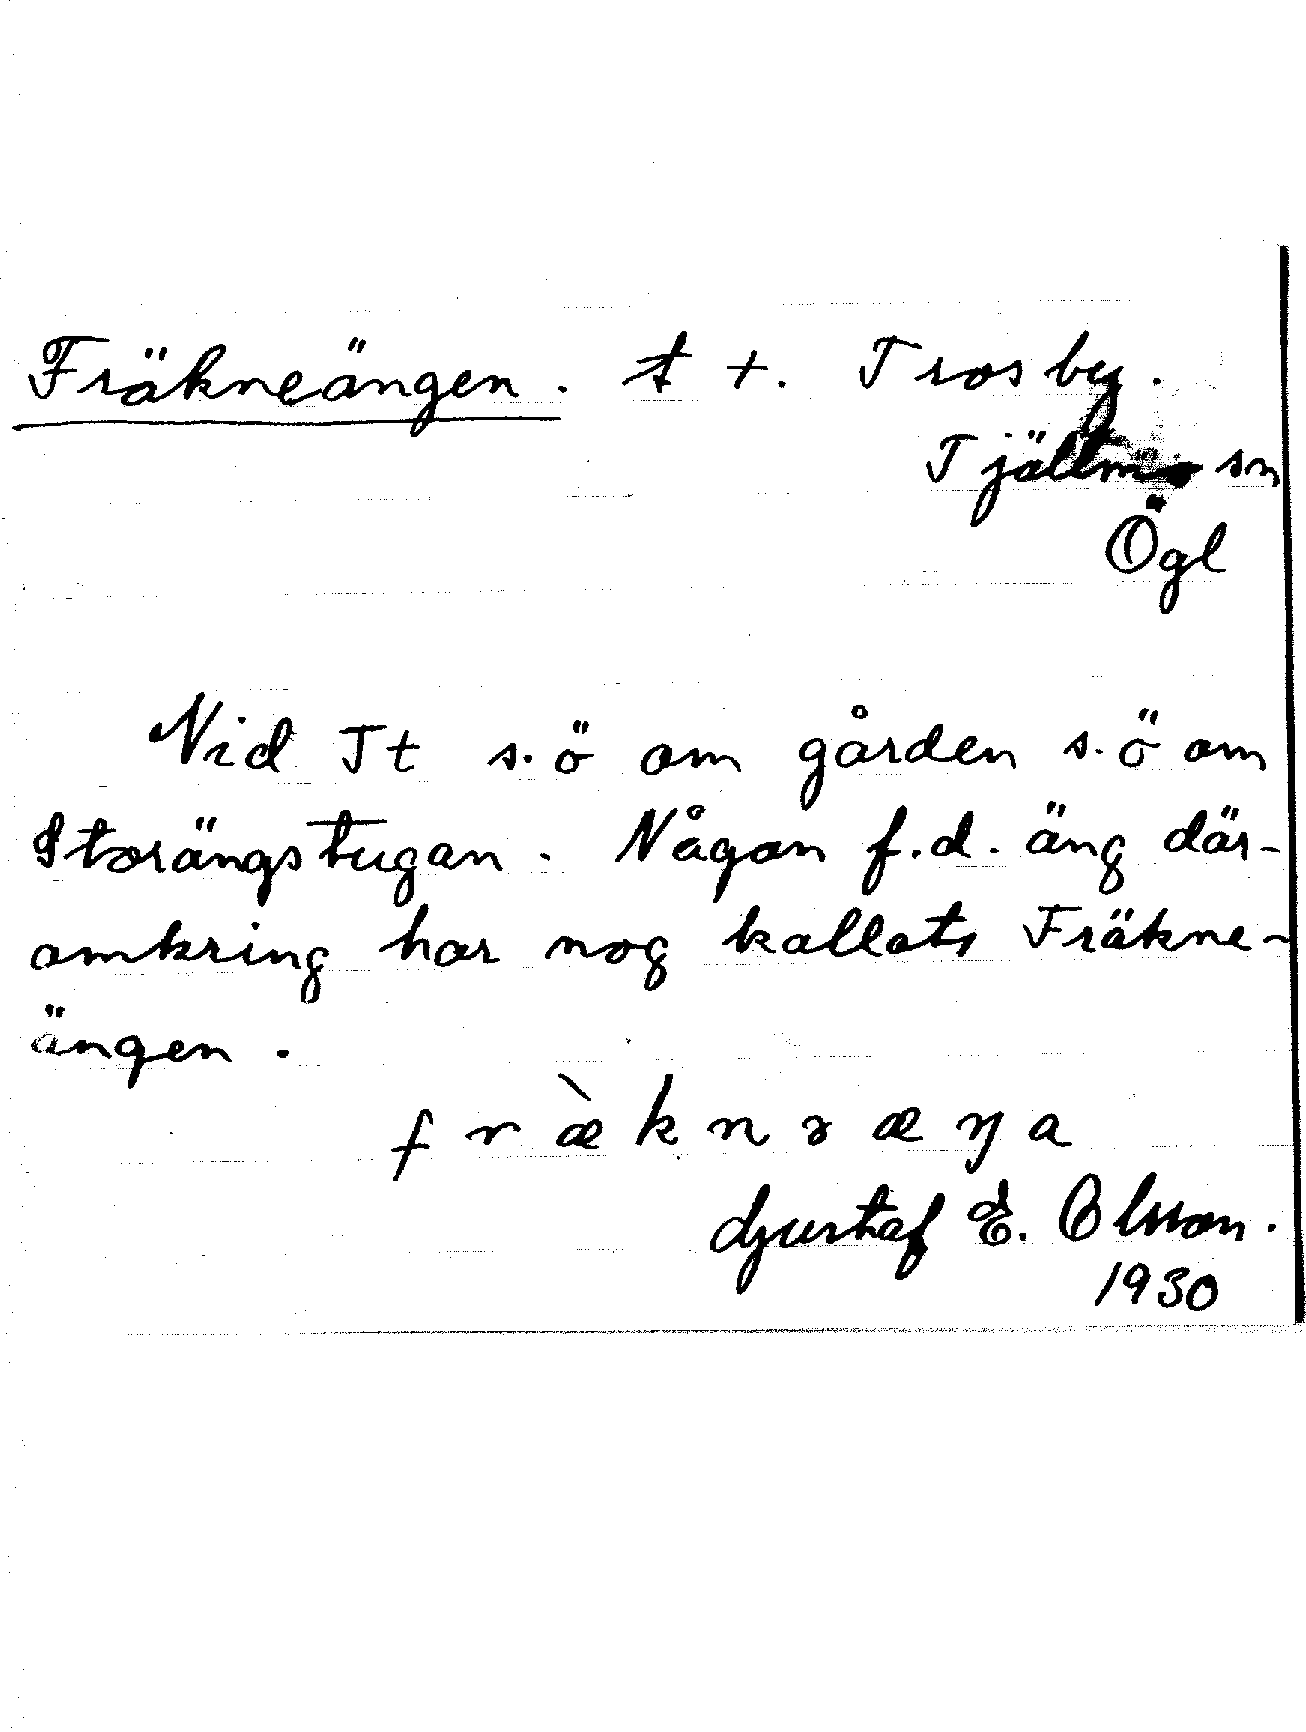 Fräkneängen. t +. Trosby.
Tjällmo sn
Ögl
Vid Tt s.ö om gården s.ö om
Storängstugan. Någon f.d. äng där-
omkring har nog kallats Fräkne-
ängen.
fræ̀knəæŋa
Gustaf E. Olsson.
1930